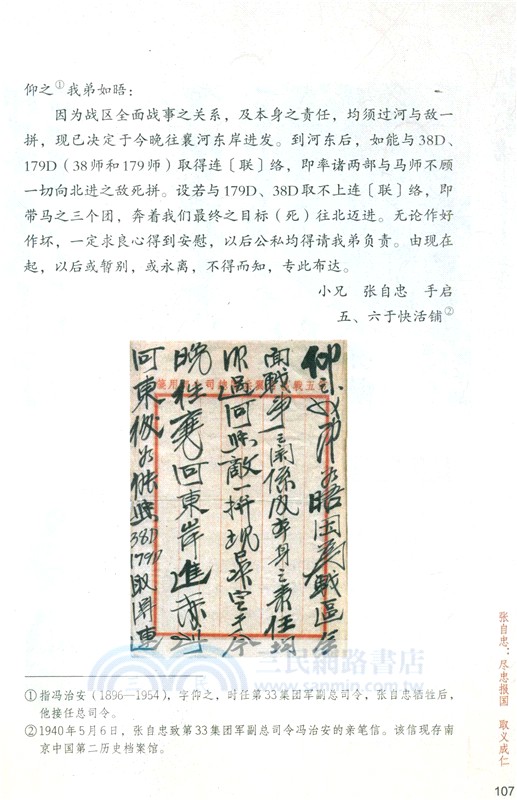 仰之①我弟如晤：
因为战区全面战事之关系，及本身之责任，均须过河与敌一
拼，现已决定于今晚往襄河东岸进发。到河东后，如能与38D、
179D（38师和179师）取得连〔联〕络，即率诸两部与马师不顾
一切向北进之敌死拼。设若与179D、38D取不上连〔联〕络，即
带马之三个团，奔着我们最终之目标（死）往北迈进。无论作好
作坏，一定求良心得到安慰，以后公私均得请我弟负责。由现在
起，以后或暂别，或永离，不得而知，专此布达。
小兄　张自忠　手启
五、六于快活铺②
仰之我弟如晤因为战区全
面戰事之関係及本身之责任均
須過河與敵一拼現已决定于今
晚往襄河東岸進發到
河東後如能與38D179D取得連
三民網路書店
www.sanmin.com.tw
①指冯治安（1896—1954），字仰之，时任第33集团军副总司令，张自忠牺牲后，
他接任总司令。
②1940年5月6日，张自忠致第33集团军副总司令冯治安的亲笔信。该信现存南
京中国第二历史档案馆。
张自忠：尽忠报国　取义成仁
107